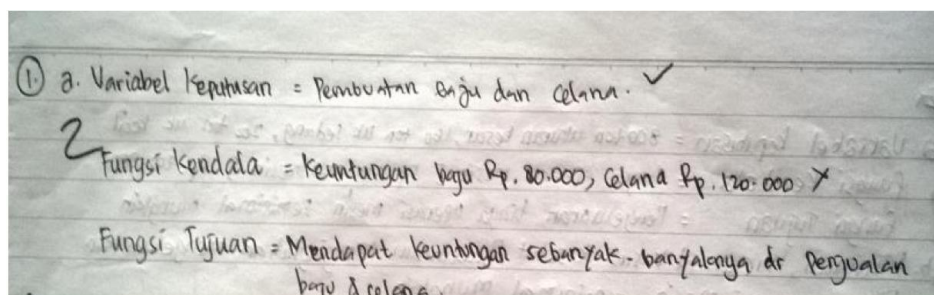 ① a. Variabel Keputusan = Pembuatan baju dan celana. ✓
2
Fungsi Kendala = Keuntungan baju Rp. 80.000, Celana Rp. 120.000 X
Fungsi Tujuan = Mendapat keuntungan sebanyak-banyaknya dr penjualan
baju & celana.